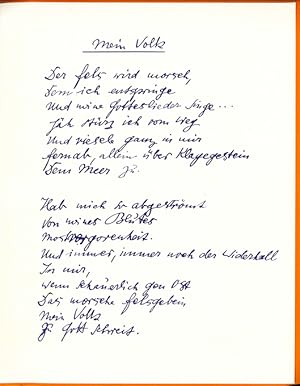 Mein Volk
Der Fels wird morsch,
Dem ich entspringe
Und meine Gotteslieder singe...
Jäh stürz ich vom Weg
Und riesele ganz in mir
Fernab, allein über Klagegestein
Dem Meer zu.
Hab mich so abgeströmt
Von meines Blutes
Mostvergorenheit.
Und immer, immer noch der Widerhall
In mir,
wenn schauerlich gen Ost
Das morsche Felsgebein
Mein Volk
Zu Gott schreit.